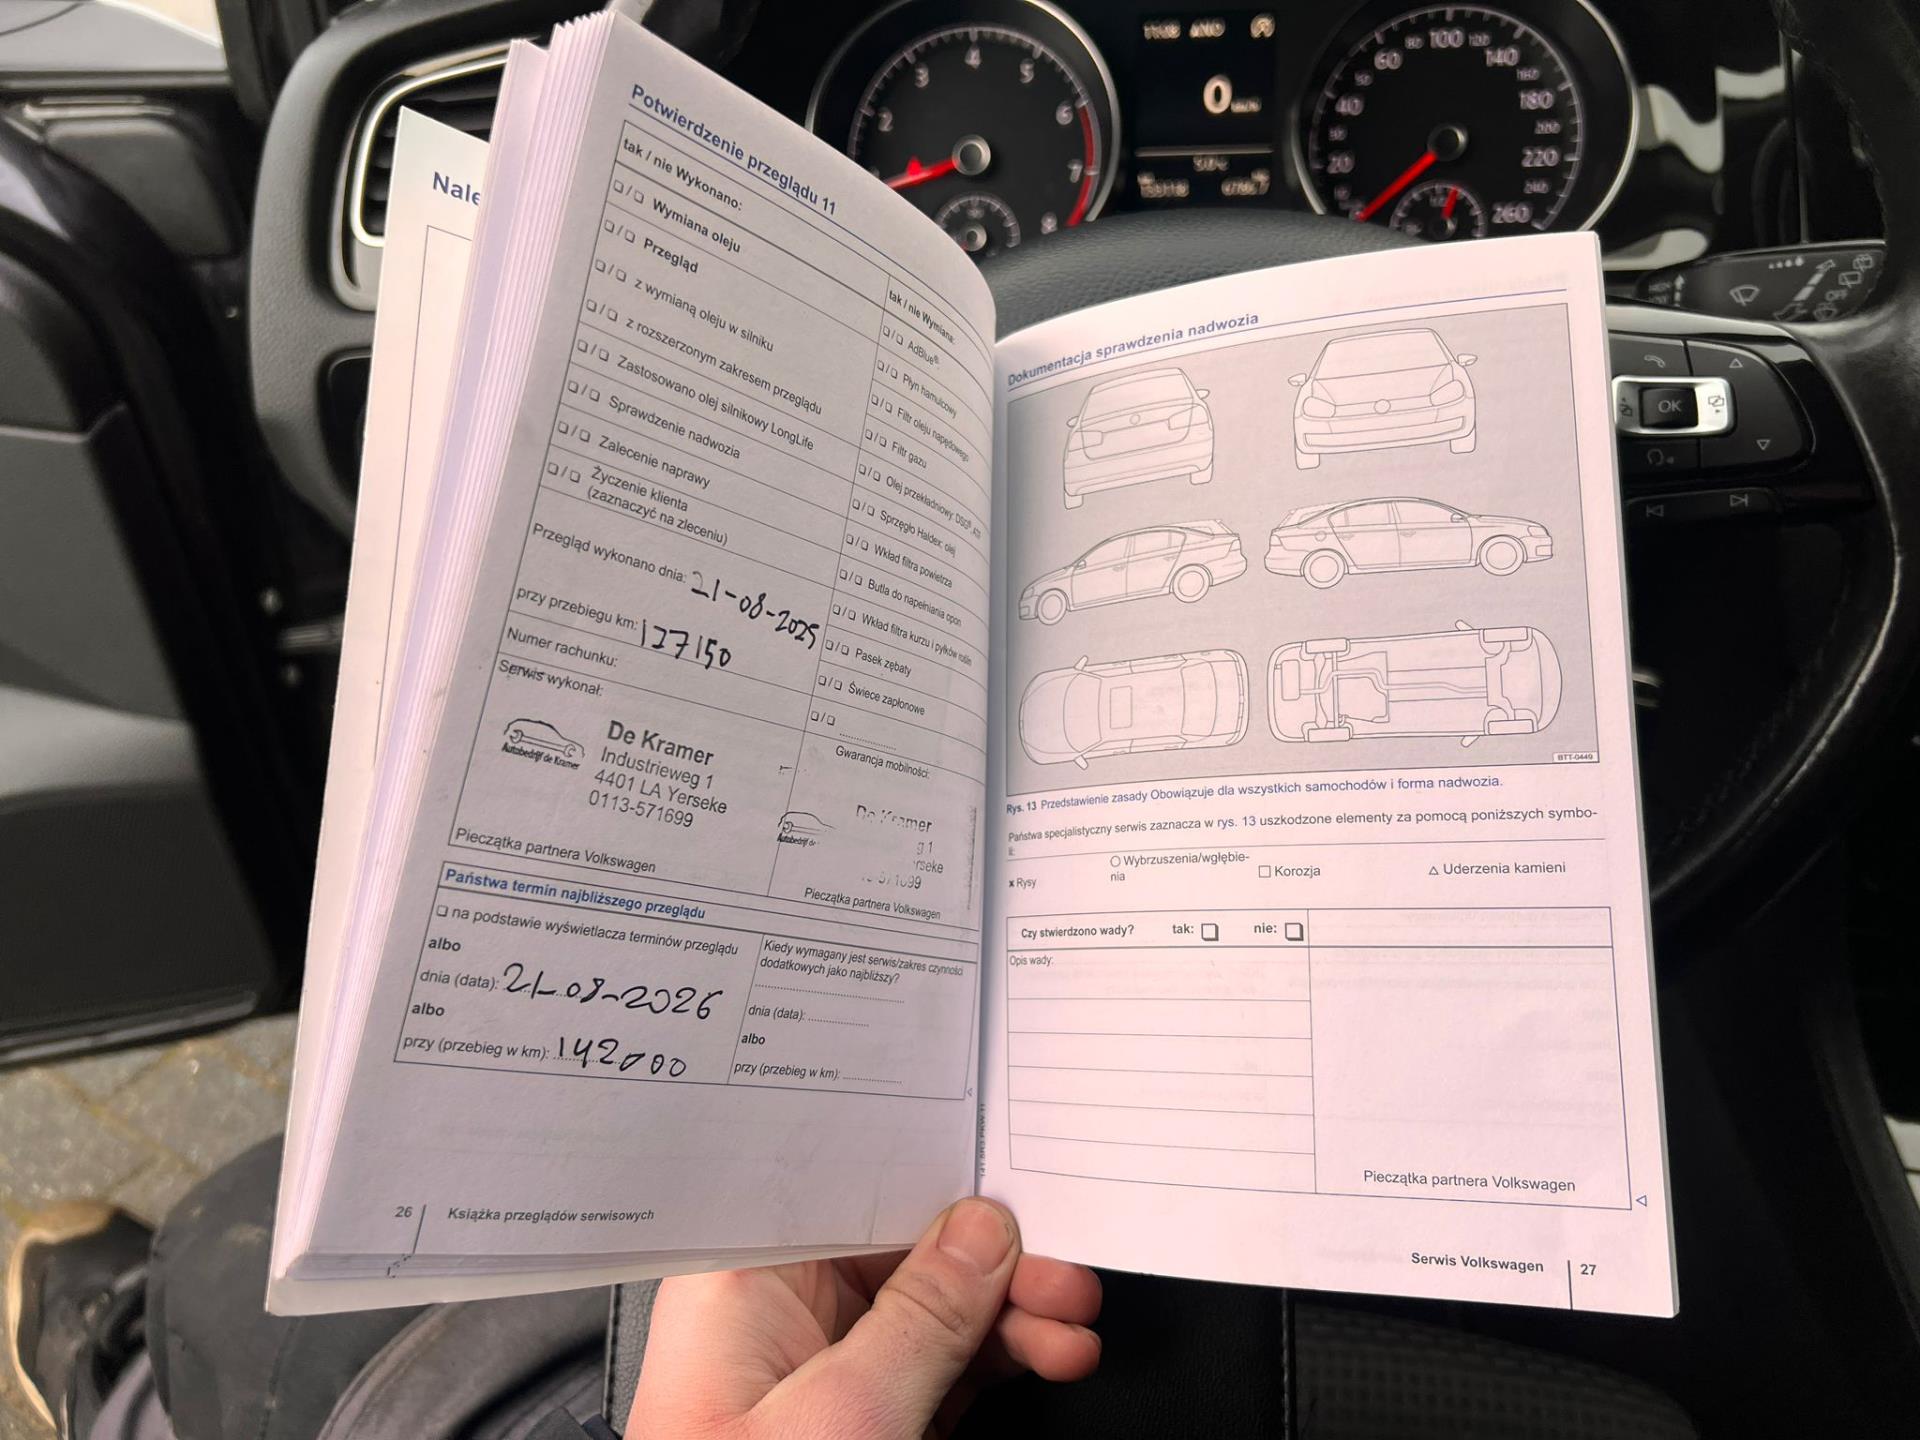 Nale
Potwierdzenie przeglądu 11
tak / nie Wykonano:
❏/❏ Wymiana oleju
❏/❏ Przegląd
❏/❏ z wymianą oleju w silniku
❏/❏ z rozszerzonym zakresem przeglądu
❏/❏ Zastosowano olej silnikowy LongLife
❏/❏ Sprawdzenie nadwozia
❏/❏ Zalecenie naprawy
❏/❏ Życzenie klienta
(zaznaczyć na zleceniu)
Przegląd wykonano dnia: 21-08-2025
przy przebiegu km: 127150
Numer rachunku:
Serwis wykonał:
Autobedrijf de Kramer
De Kramer
Industrieweg 1
4401 LA Yerseke
0113-571699
Pieczątka partnera Volkswagen
tak / nie Wymiana:
❏/❏ AdBlue®
❏/❏ Płyn hamulcowy
❏/❏ Filtr oleju napędowego
❏/❏ Filtr gazu
❏/❏ Olej przekładniowy: DSG®,
❏/❏ Sprzęgło Haldex: olej
❏/❏ Wkład filtra powietrza
❏/❏ Butla do napełniania opon
❏/❏ Wkład filtra kurzu i pyłków roślin
❏/❏ Pasek zębaty
❏/❏ Świece zapłonowe
❏/❏ ....................
Gwarancja mobilności:
Autobedrijf de
De Kramer
g 1
rseke
Pieczątka partnera Volkswagen
Państwa termin najbliższego przeglądu
❏ na podstawie wyświetlacza terminów przeglądu
albo
dnia (data): 21-08-2026
albo
przy (przebieg w km): 142000
Kiedy wymagany jest serwis/zakres czynności
dodatkowych jako najbliższy?
dnia (data): ................
albo
przy (przebieg w km): ................
26 Książka przeglądów serwisowych
Dokumentacja sprawdzenia nadwozia
BTT-0449
Rys. 13 Przedstawienie zasady Obowiązuje dla wszystkich samochodów i forma nadwozia.
Państwa specjalistyczny serwis zaznacza w rys. 13 uszkodzone elementy za pomocą poniższych symbo-
li:
x Rysy
○ Wybrzuszenia/wgłębie-
nia
□ Korozja
△ Uderzenia kamieni
Czy stwierdzono wady? tak: ❏ nie: ❏
Opis wady:
Pieczątka partnera Volkswagen
Serwis Volkswagen 27
2 3 4 5 6 7 8
0
20 40 60 80 100 120 140 160 180 200 220 240 260
OK
OFF